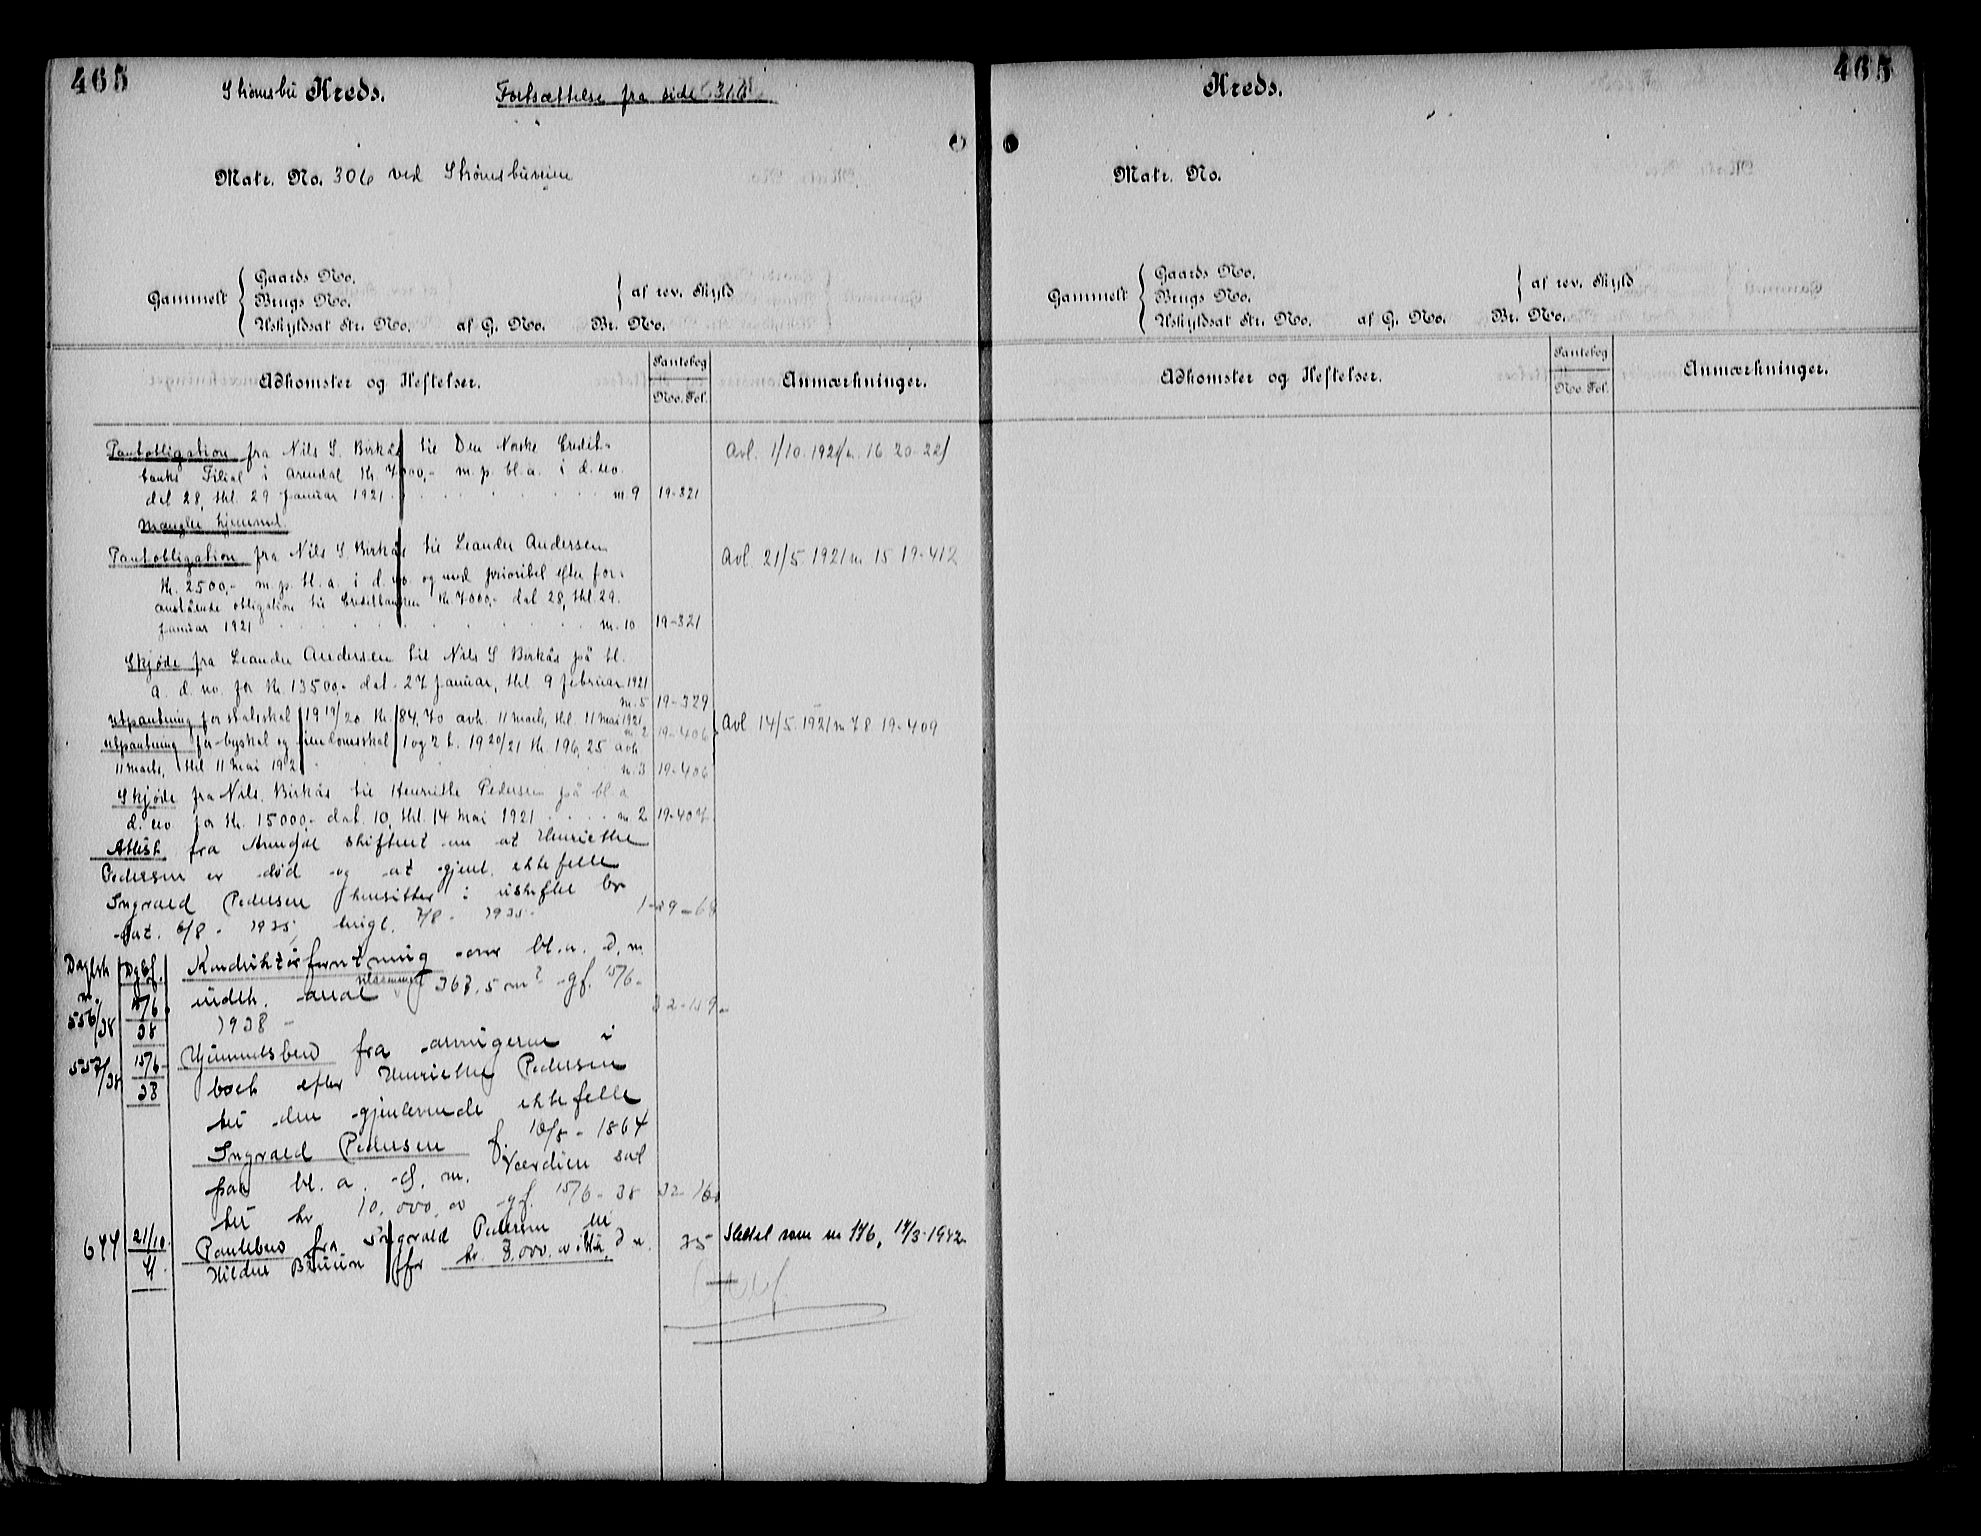 465
Strømsbu Kreds. Fortsættelse fra side 310
Matr. No. 306 ved Strømsbuveien
Gammelt
Gaards No.
Brugs No.
Uskyldsat Str. No. af G. No. Br. No.
af rev. Skyld
Adkomster og Heftelser.
Pantebog
No. Fol.
Anmærkninger.
Pantobligation fra Nils S. Birkås til Den Norske Credit-
banks Filial i Arendal Kr. 7000,- m. p. bl. a. i d. no.
dat 28, thl. 29 januar 1921 . . . . . . . n. 9 19-321
Avl. 1/10. 1921 n. 16 20-22
Mangler hjemmel
Pantobligation fra Nils S. Birkås til Leander Andersen
Kr. 2500,- m. p. bl. a. i d. no og med prioritet efter for-
anstående obligation til Creditbanken Kr. 7000,- dat 28, thl. 29.
januar 1921 . . . . . . . n. 10 19-321
Avl. 21/5. 1921 n. 15 19-412
Skjøde fra Leander Andersen til Nils S Birkås på bl.
a. d. no. for Kr. 13500,- dat. 27 januar, thl 9 februar 1921
n. 5 19-329
Utpantning for statsskat 1919/20. Kr. 84,70 avh. 11 marts, thl. 11 mai 1921
n. 2 19-406
Utpantning for byskat og eiendomsskat 1 og 2 t. 1920/21 Kr. 196,25 avh.
11 marts, thl 11 mai 1921 . . . n. 3 19-406
Avl 14/5. 1921 n 78 19-409
Skjøde fra Nils. Birkås til Henriette Pedersen på bl. a
d. no for Kr. 15000,- dat. 10, thl. 14 mai 1921 . . . . n 2 19-407
Attest fra Arendal skifteret om at Henriette
Pedersen er død og at gjenl. ektefelle
Ingvald Pedersen hensitter i uskiftet bo
dat. 6/8 - 1935, tingl. 7/8 - 1935 -
29-68
Dagbk n. Dgbf.
556/38 15/6. 38
Konduktørforretning over bl. a. d. m.
indth. areal tilsammen 367.5 m² gf. 15/6-
1938 - 32-159
557/38 15/6- 38
Hjemmelsbrev fra arvingerne i
boet efter Henriette Pedersen
til den gjenlevende ektefelle
Ingvald Pedersen f. 10/8 - 1864
paa bl. a. d. m. Værdien sat
til kr. 10,000,00 gf. 15/6 - 38 32-160
644 21/10. 41.
Pantebrev fra Ingvald Pedersen til
Hildur Bruun for kr. 8,000.00 i bl. a. d n.
35
Slettet som nr 146, 17/3-1942
465
Kreds.
Matr. No.
Gammelt
Gaards No.
Brugs No.
Uskyldsat Str. No. af G. No. Br. No.
af rev. Skyld
Adkomster og Heftelser.
Pantebog
No. Fol.
Anmærkninger.